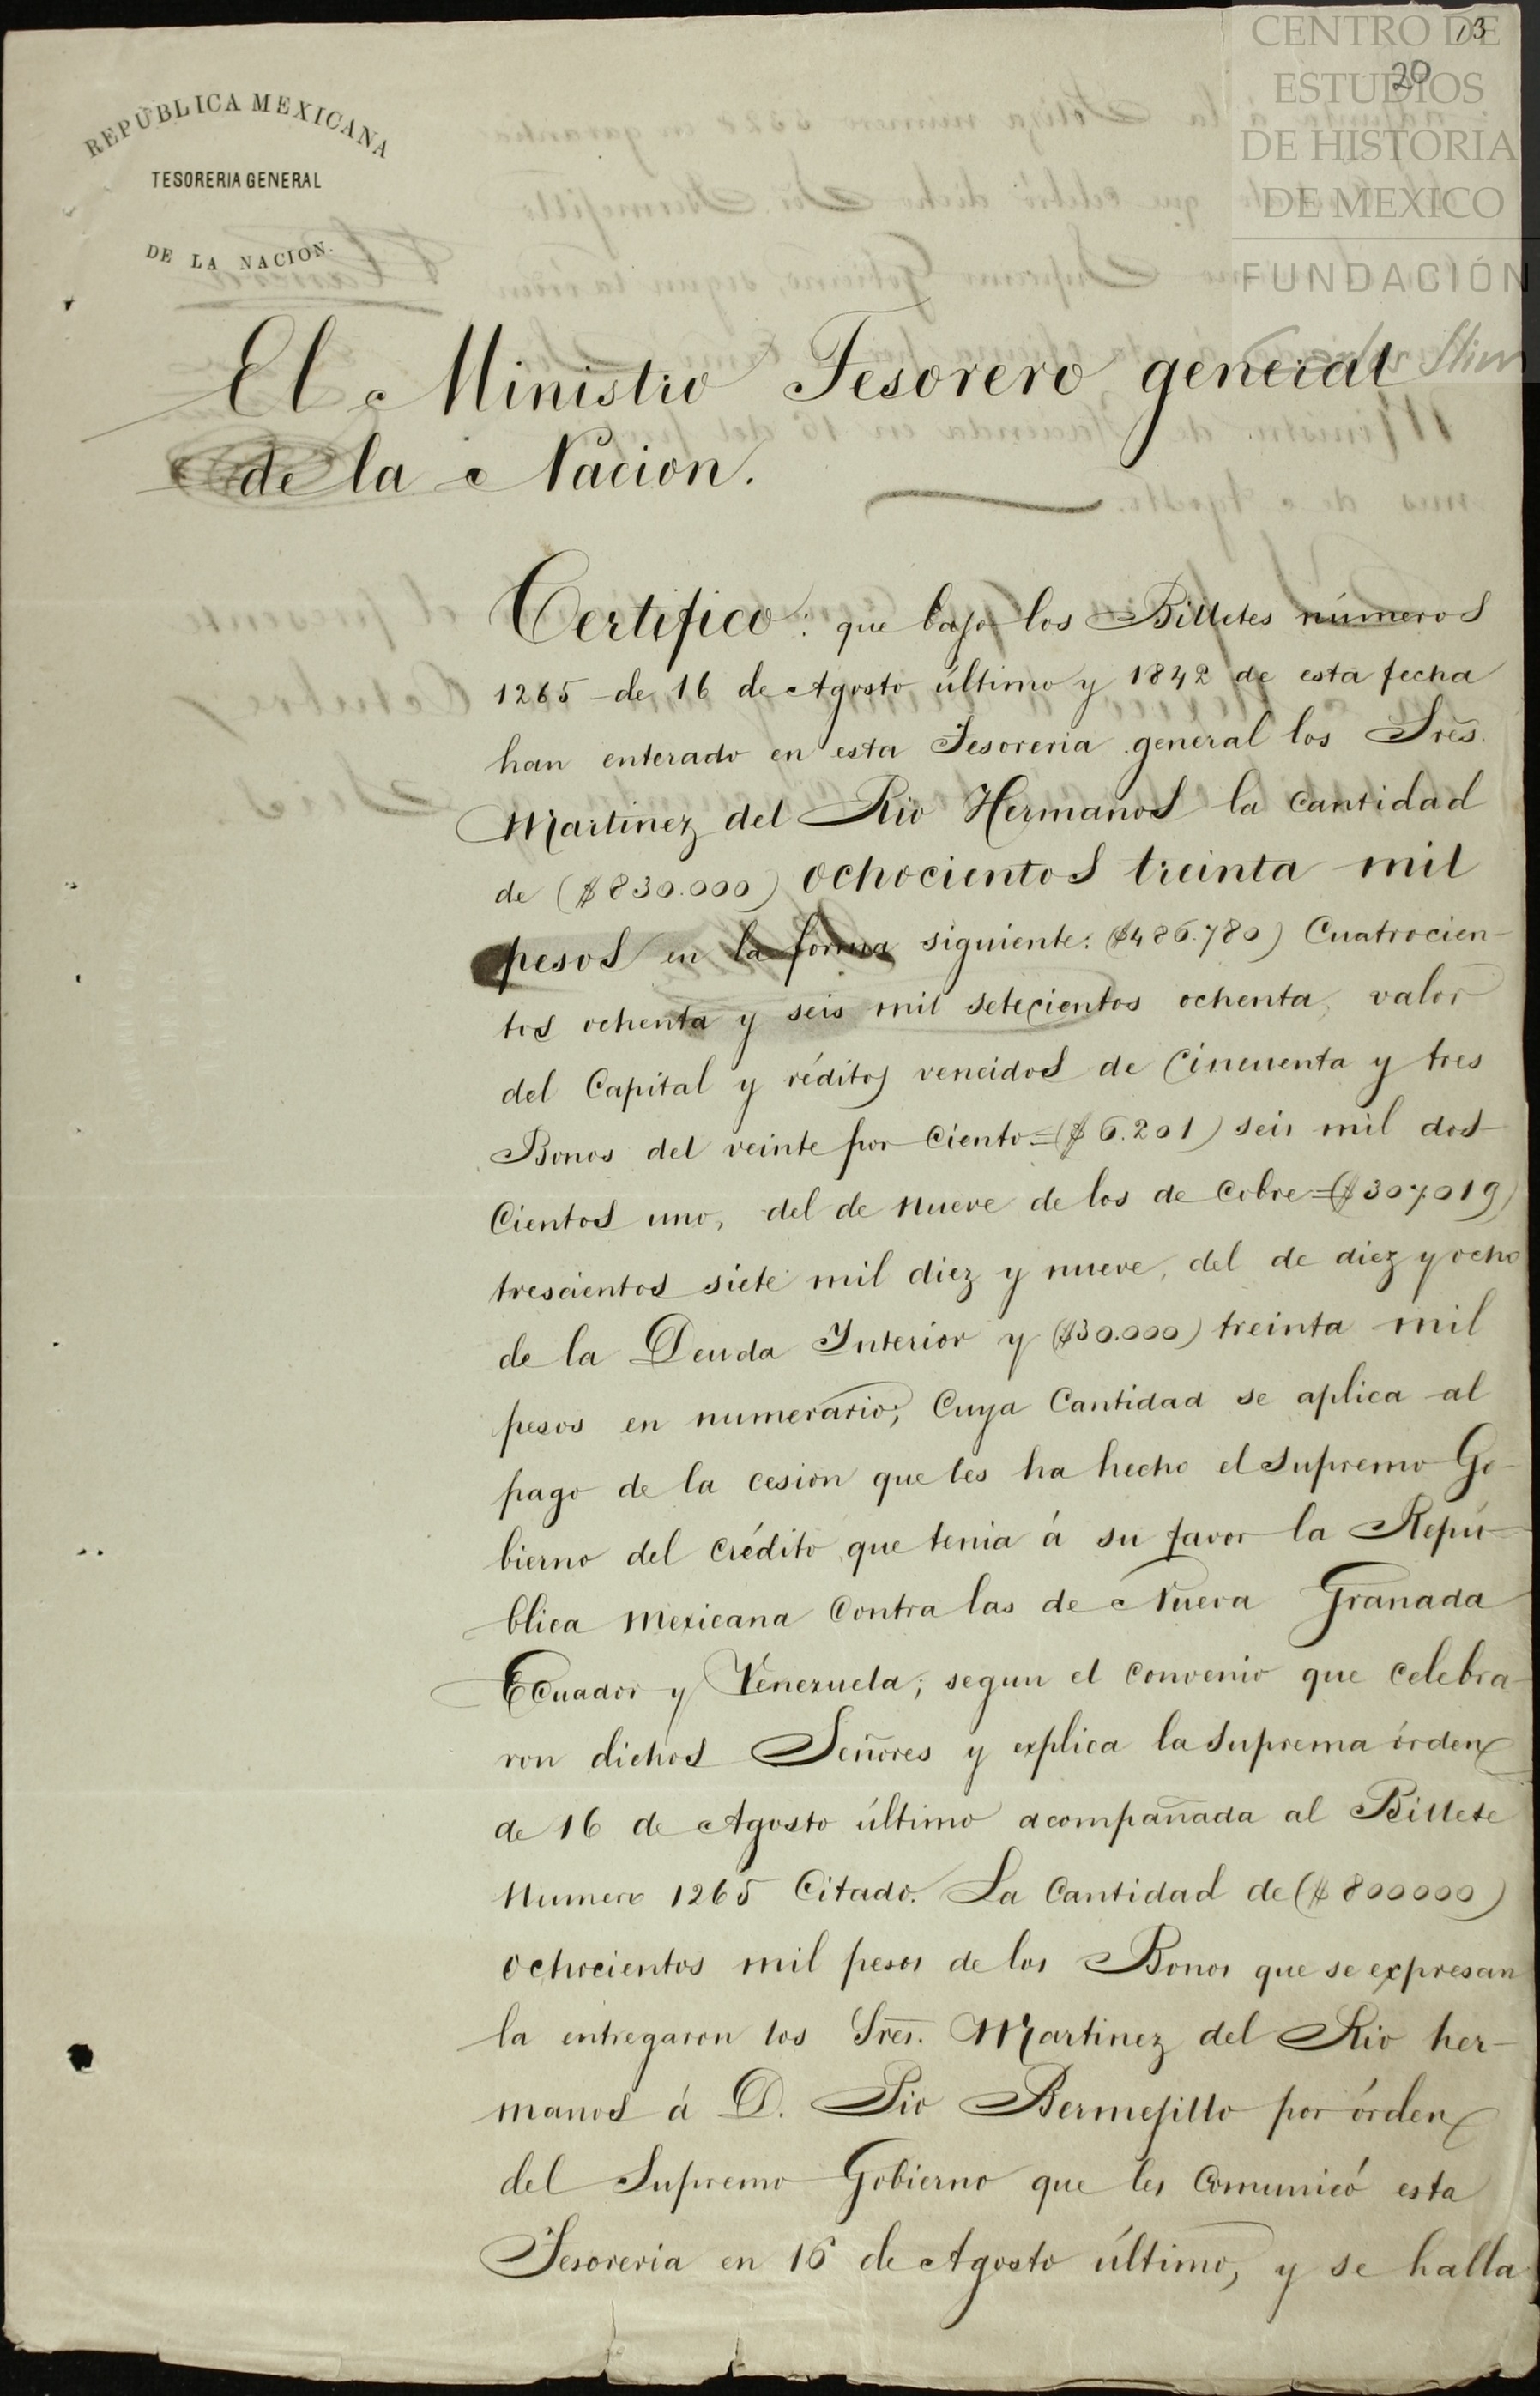 13
20
CENTRO DE
ESTUDIOS
DE HISTORIA
DE MEXICO
FUNDACIÓN
Carlos Slim
REPÚBLICA MEXICANA
TESORERIA GENERAL
DE LA NACION.
El Ministro Tesorero general
de la Nacion.
Certifico: que bajo los Billetes números
1265 de 16 de Agosto último y 1842 de esta fecha
han enterado en esta Tesoreria general los Sres.
Martinez del Rio Hermanos la cantidad
de ($830.000) ochocientos treinta mil
pesos en la forma siguiente: ($486.780) Cuatrocien-
tos ochenta y seis mil setecientos ochenta, valor
del Capital y réditos vencidos de Cincuenta y tres
Bonos del veinte por Ciento=($6.201) seis mil dos
Cientos uno, del de nueve de los de Cobre=($307.019)
trescientos siete mil diez y nueve, del de diez y ocho
de la Deuda Interior y ($30.000) treinta mil
pesos en numerario; Cuya Cantidad se aplica al
pago de la cesion que les ha hecho el Supremo Go-
bierno del crédito que tenia á su favor la Repú-
blica Mexicana Contra las de Nueva Granada
Ecuador y Venezuela; segun el convenio que celebra-
ron dichos Señores y explica la Suprema órden
de 16 de Agosto último acompañada al Billete
Numero 1265 Citado. La Cantidad de ($800000)
ochocientos mil pesos de los Bonos que se expresan
la entregaron los Sres. Martinez del Rio her-
manos á D. Pio Bermejillo por órden
del Supremo Gobierno que les Comunicó esta
Tesoreria en 16 de Agosto último, y se halla